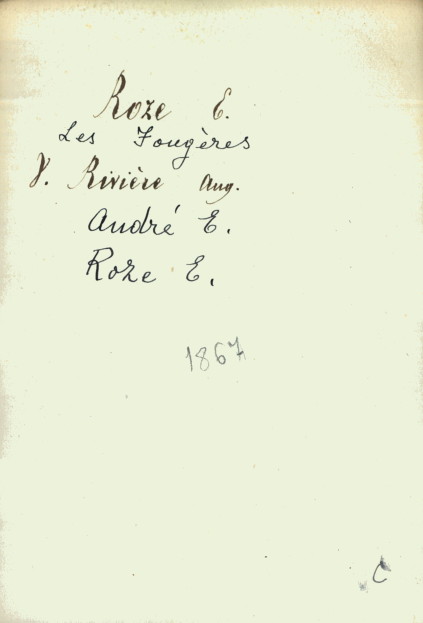 Roze E.
Les Fougères
V. Rivière Aug.
André E.
Roze E.
1867
C